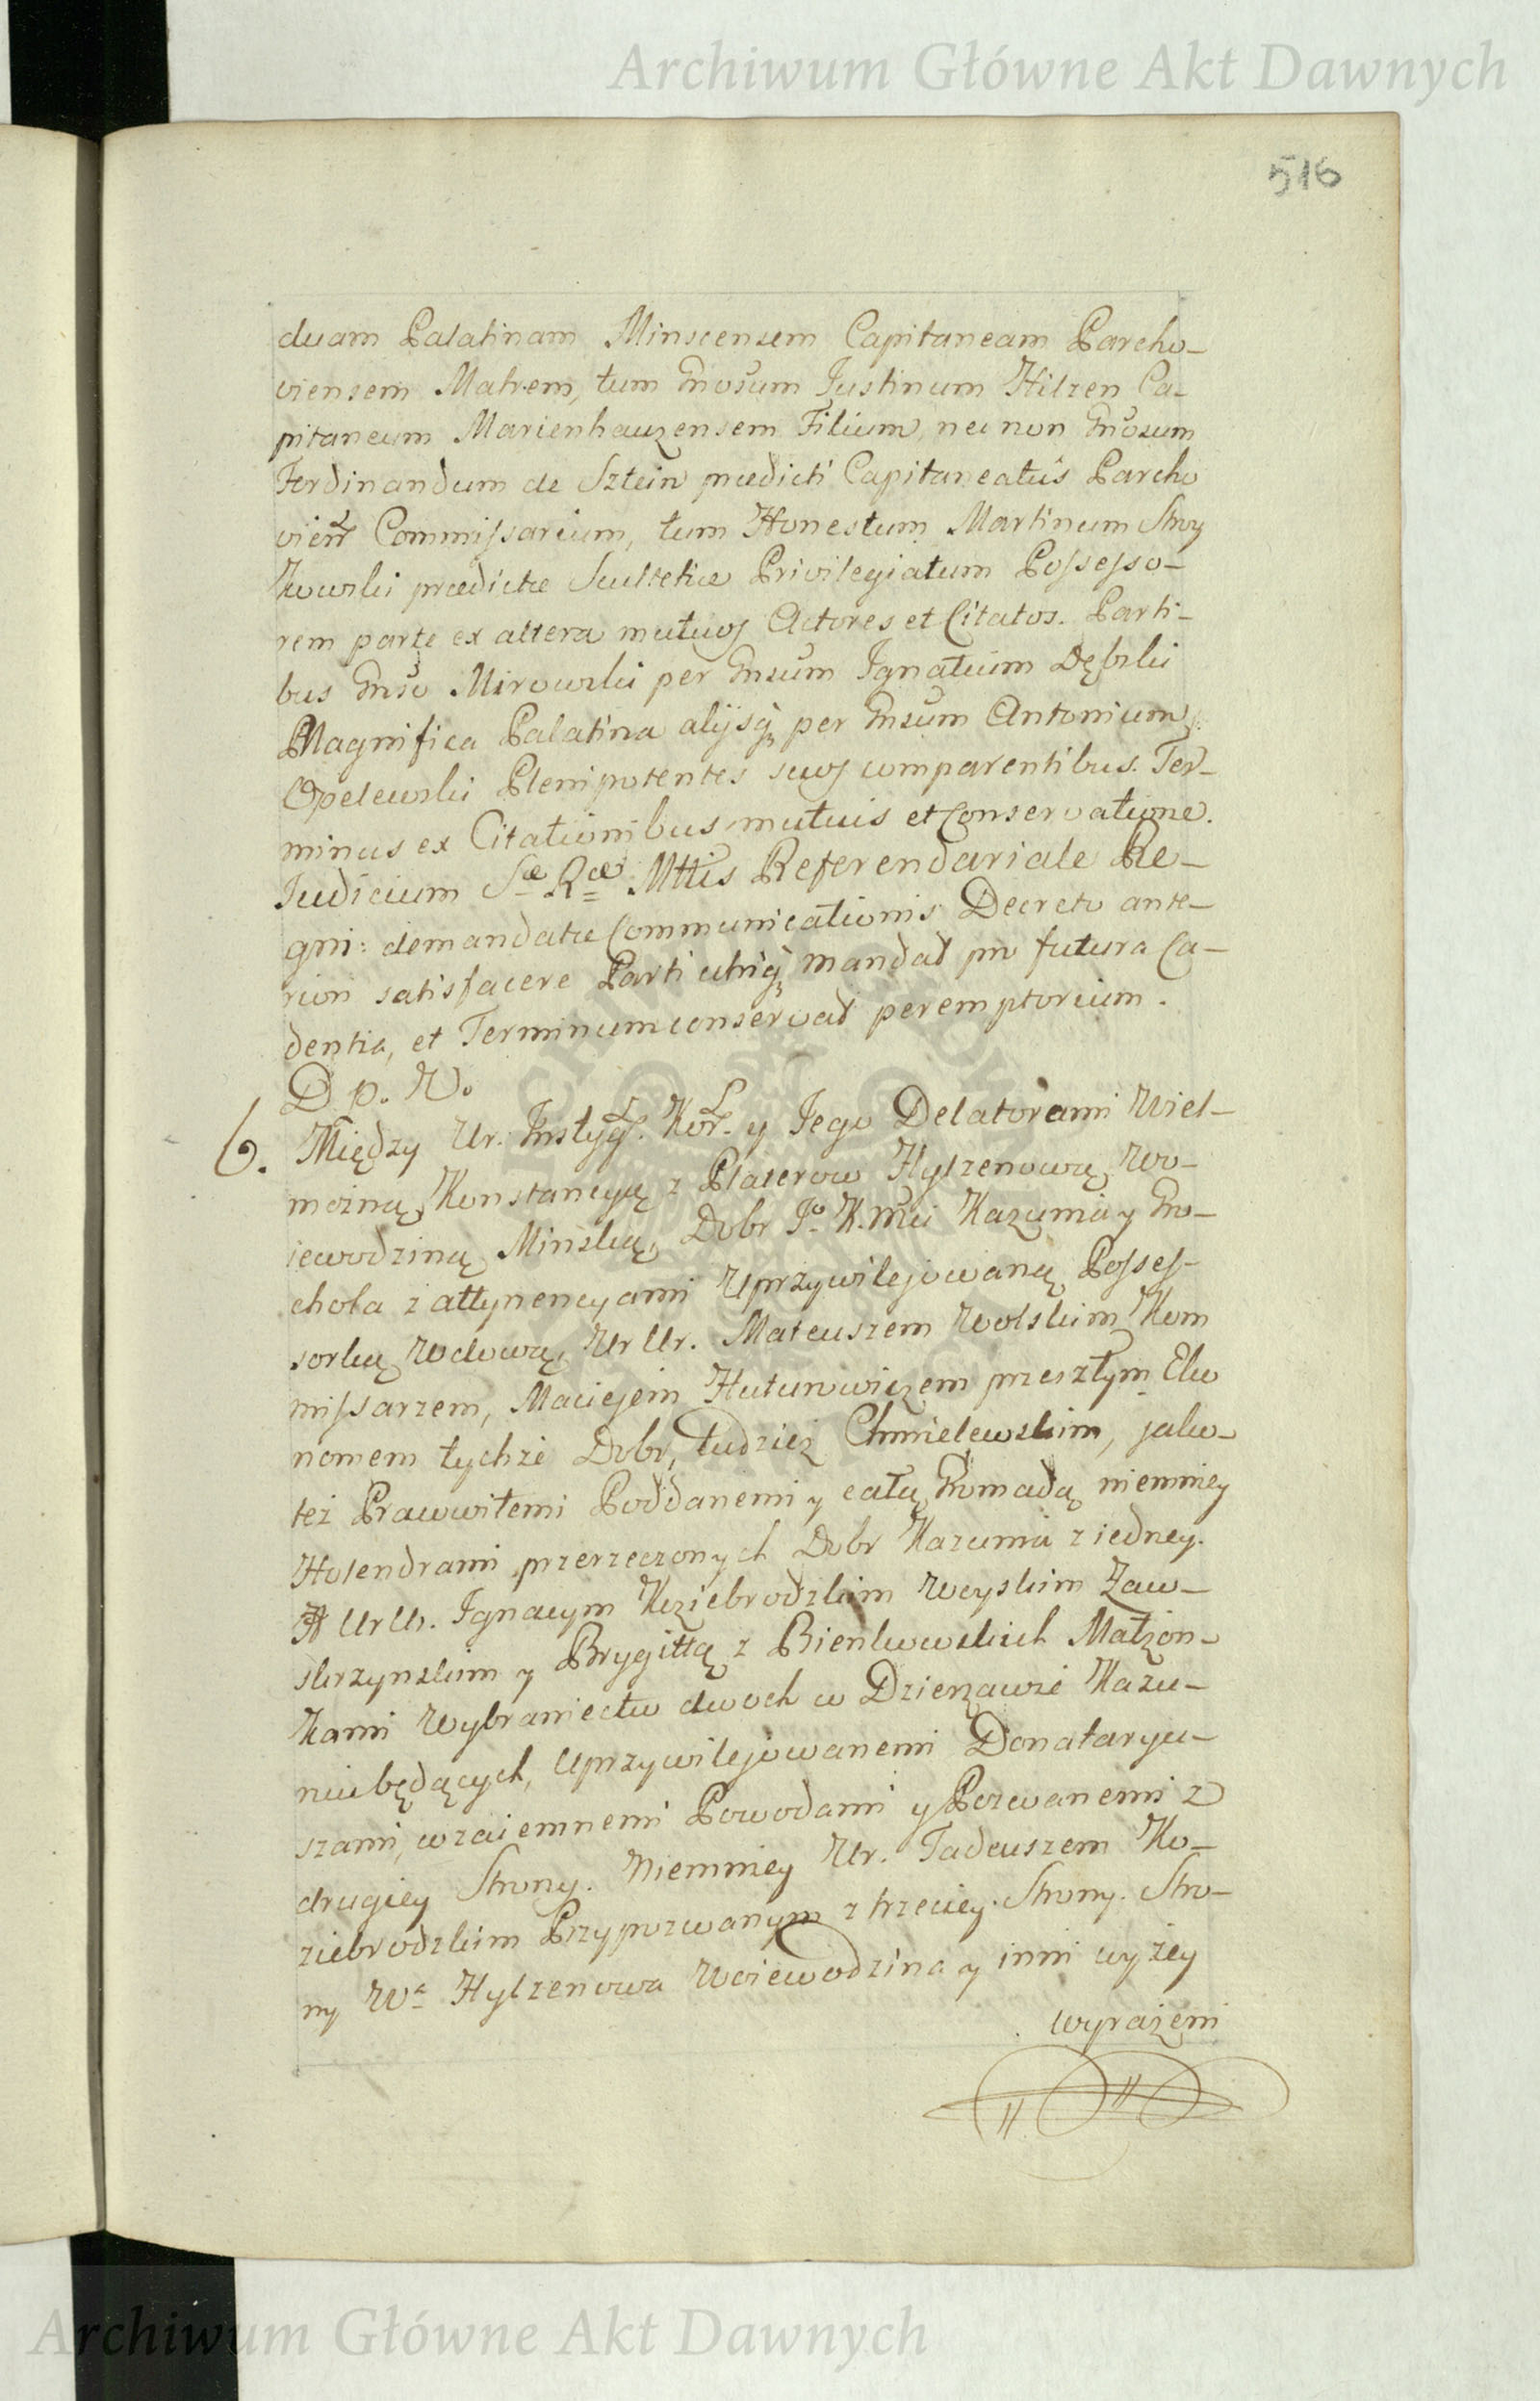 Archiwum Główne Akt Dawnych
516
duam Palatinam Minscensem Capitaneam Parcho-
viensem Matrem, tum Gnosum Justinum Hilzen Ca-
pitaneum Marienhauzensem Filium, nec non Gnosum
Ferdinandum de Sztein prædicti Capitaneatûs Parcho
vien̄ Commissarium, tum Honestum Martinum Stroy
kowski prædictæ Scultetiæ Privilegiatum Possesso-
rem parte ex altera mutuos Actores et Citatos. Parti-
bus Gnso Mirowski per Gnsum Ignatium Dębski
Magnifica Palatina alijsq; per Gnsum Antonium
Opelewski Plenipotentes suos comparentibus. Ter-
minus ex Citationibus mutuis et Conservatione.
Judicium Sæ Ræ Mttis Referendariale Re-
gni: demandatæ Communicationis Decreto ante-
riori satisfacere Parti utriq; mandat pro futura Ca-
dentia, et Terminum conservat peremptorium.
D. p. N.
6. Między Ur. Instyg. Kor. y Jego Delatorami Wiel-
możną Konstancyą z Platerow Hylzenową Wo-
iewodziną Minską, Dobr Jo K. Mci Kazunia y Gro-
chola z attynencyami Uprzywilejowaną Posses-
sorką Wdową, Ur Ur. Mateuszem Wolskim Kom
missarzem, Maciejem Hutunowiczem przeszłym Eko
nomem tychże Dobr, tudziez Chmielewskim, jako-
też Pracowitemi Poddanemi y całą Gromadą niemniey
Holendrami przerzeczonych Dobr Kazunia z iedney.
A Ur Ur. Ignacym Koziebrodzkim Woyskim Zaw-
skrzynskim y Brygittą z Bienkowskich Małżon-
kami Wybraniectw dwoch w Dzierzawie Kazu-
niu będących, Uprzywilejowanemi Donataryu-
szami, wzaiemnemi Powodami y Pozwanemi z
drugiey Strony. Niemniey Ur. Tadeuszem Ko-
ziebrodzkim Przypozwanym z trzeciey Strony. Stro-
ny Wa Hylzenowa Woiewodzina y inni wyżey
wyrażeni
Archiwum Główne Akt Dawnych